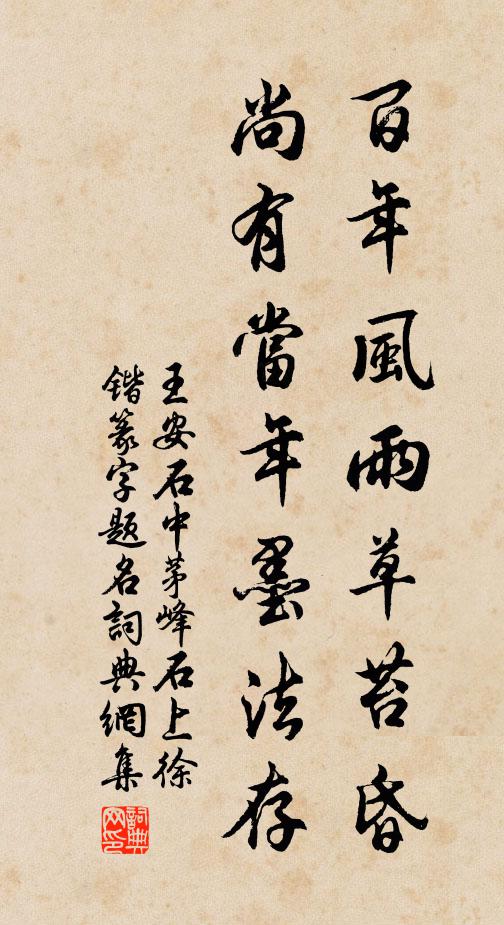 百年風雨草苔昏
尚有當年墨法存
王安石中茅峰石上徐
鍇篆字題名詞典網集
詞典网印